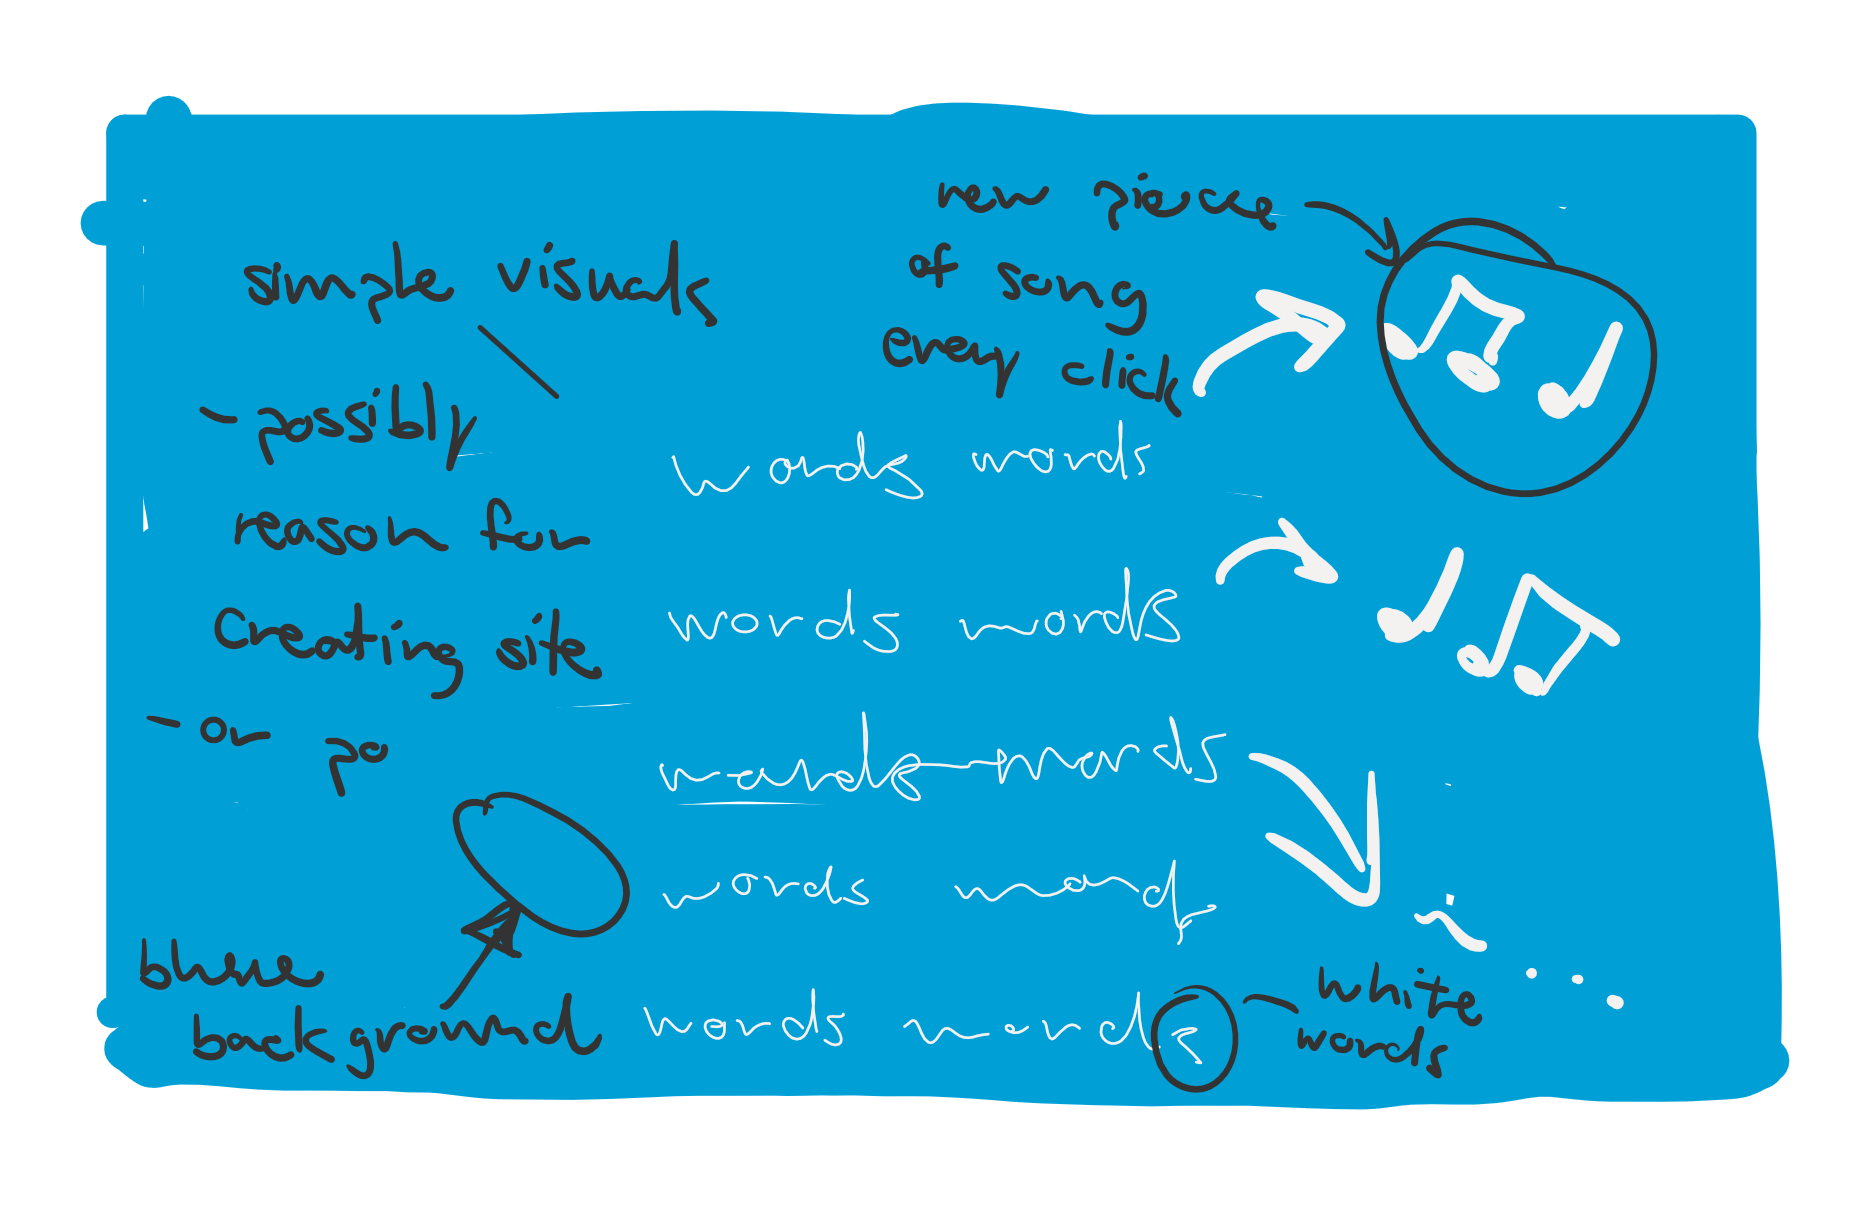 simple visuals
- possibly
reason for
creating site
- or po
new piece
of song
every click
words words
words words
words words
words word
words words
blue
background
white
words